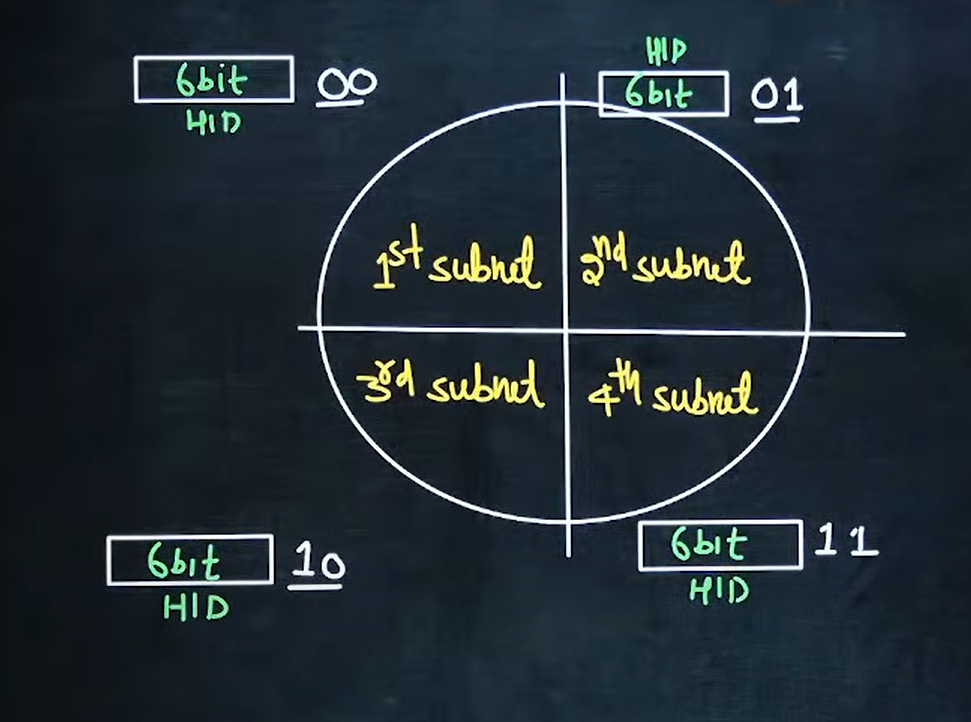 HID
6bit 00
6bit 01
HID
1st subnet
2nd subnet
3rd subnet
4th subnet
6bit 10
HID
6bit 11
HID